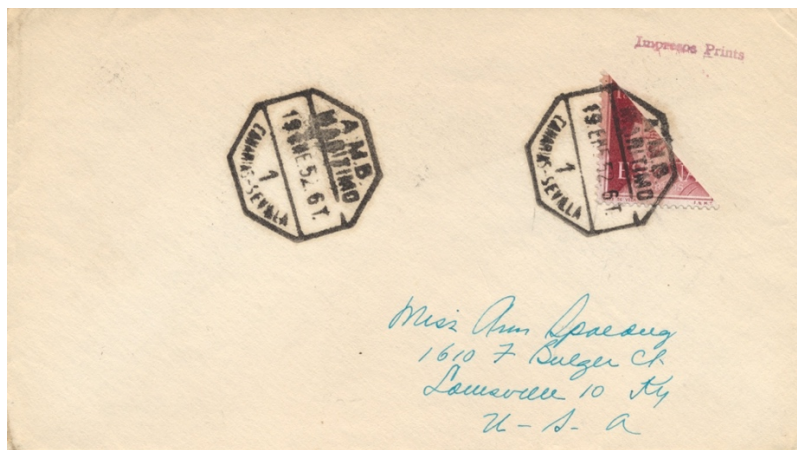 Impresos Prints
AMB.
MARITIMO
19 ENE 52.6T.
1
CANARIAS-SEVILLA
AMB.
MARITIMO
19 ENE 52 6T.
1
CANARIAS-SEVILLA
Miss Ann
1610 F Bulger Ct
Louisville 10 Ky
U-S-A